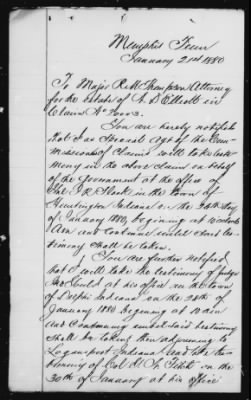 Memphis Tenn
January 21st 1880
To Major R M Thompson Attorney
for the estate of A. D. Elliott in
Claim No
You are hereby notified
that I as Special Agt of the Com-
missioner of Claims will take testi-
mony in the above claim on behalf
of the Government at the office of
in the town of
Huntington Indiana on the 26th day
of January 1880, begining at 10 o'clock
Am and continue until said tes-
timony shall be taken.
You are further notified
that I will take the testimony of Judge
Gould at his office in the town
of Delphi Indiana on the 28th of
January 1880 begining at 10 am
and continuing until said testimony
shall be taken, then adjourning to
Logansport Indiana and take tes-
timony of Col. at
30th of January at his office